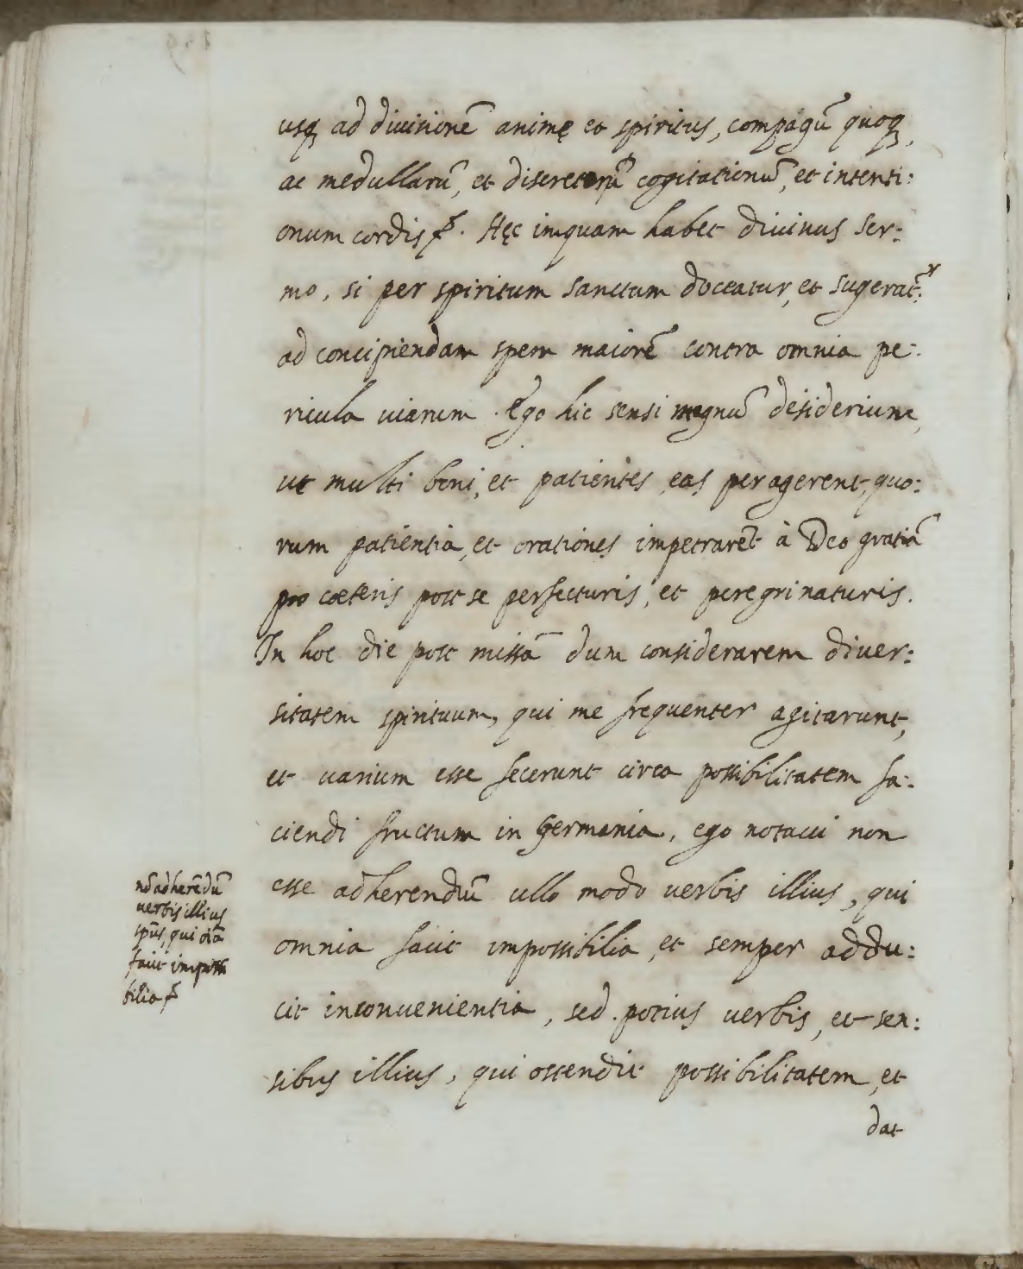 usq₃ ad diuisionē animę et spiritus, compagū quoq₃,
ac medullarū, et discretorū cogitationū, et intenti:
onum cordis &. Hęc inquam habet diuinus ser:
mo, si per spiritum sanctum doceatur, et sugerat.r
ad concipiendam spem maiorē contra omnia pe:
ricula uiarum. Ego hic sensi magnū desiderium,
ut multi boni, et patientes eas peragerent, quo:
rum patientia, et orationes impetrarēt à Deo gratiā
pro cœteris post se perfecturis, et peregrinaturis.
In hoc die post missā dum considerarem diuer:
sitatem spirituum, qui me frequenter agitarunt,
et uarium esse fecerunt circa possibilitatem fa:
ciendi fructum in Germania, ego notaui non
esse adherendū ullo modo uerbis illius, qui
omnia facit impossibilia, et semper addu:
cit inconuenientia, sed potius uerbis, et sen:
sibus illius, qui ostendit possibilitatem, et
dat
nō adherēdū
uerbis illius
spūs, qui oīa
facit imposs
bilia &